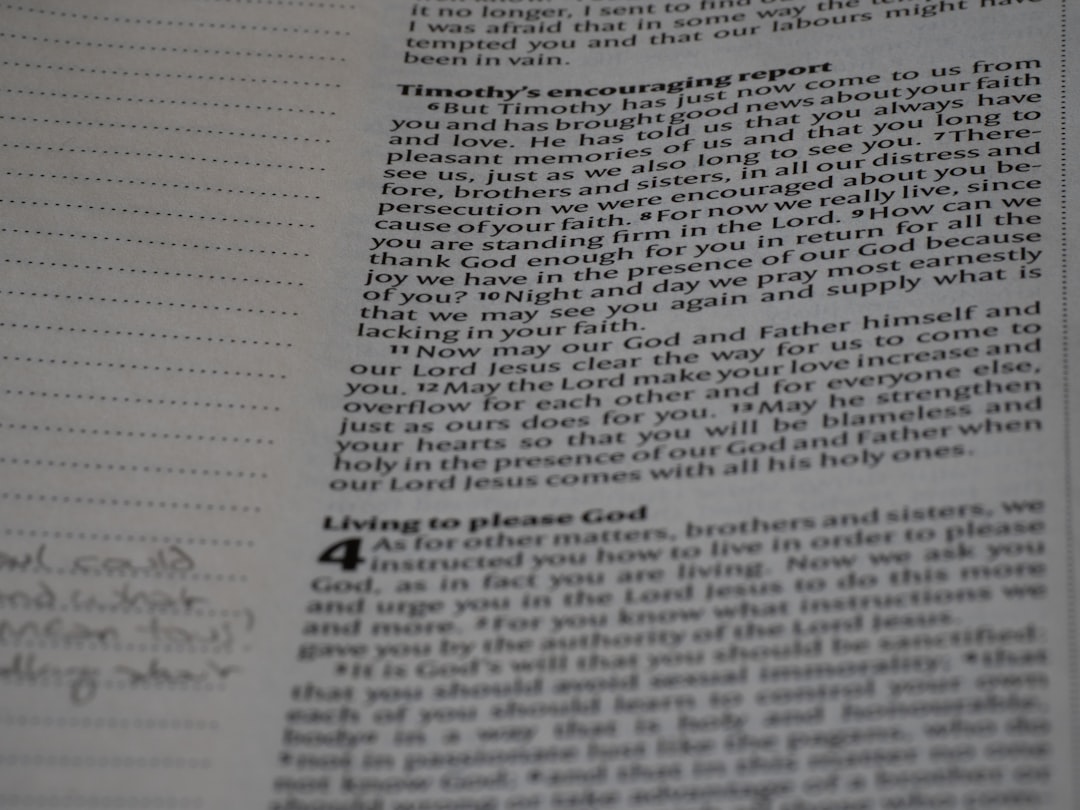 it no longer, I sent to find
I was afraid that in some way the
tempted you and that our labours might have
been in vain.
Timothy's encouraging report
6 But Timothy has just now come to us from
you and has brought good news about your faith
and love. He has told us that you always have
pleasant memories of us and that you long to
see us, just as we also long to see you. 7 There-
fore, brothers and sisters, in all our distress and
persecution we were encouraged about you be-
cause of your faith. 8 For now we really live, since
you are standing firm in the Lord. 9 How can we
thank God enough for you in return for all the
joy we have in the presence of our God because
of you? 10 Night and day we pray most earnestly
that we may see you again and supply what is
lacking in your faith.
11 Now may our God and Father himself and
our Lord Jesus clear the way for us to come to
you. 12 May the Lord make your love increase and
overflow for each other and for everyone else,
just as ours does for you. 13 May he strengthen
your hearts so that you will be blameless and
holy in the presence of our God and Father when
our Lord Jesus comes with all his holy ones.
Living to please God
4 As for other matters, brothers and sisters, we
instructed you how to live in order to please
God, as in fact you are living. Now we ask you
and urge you in the Lord Jesus to do this more
and more. 2 For you know what instructions we
gave you by the authority of the Lord Jesus.
3 It is God's will that you should be sanctified:
that you should avoid sexual immorality; 4 that
each of you should learn to control your own
body in a way that is holy and honourable,
5 not in passionate lust like the pagans, who do
not know God; 6 and that in this matter no one
should wrong or take advantage of a brother or
could